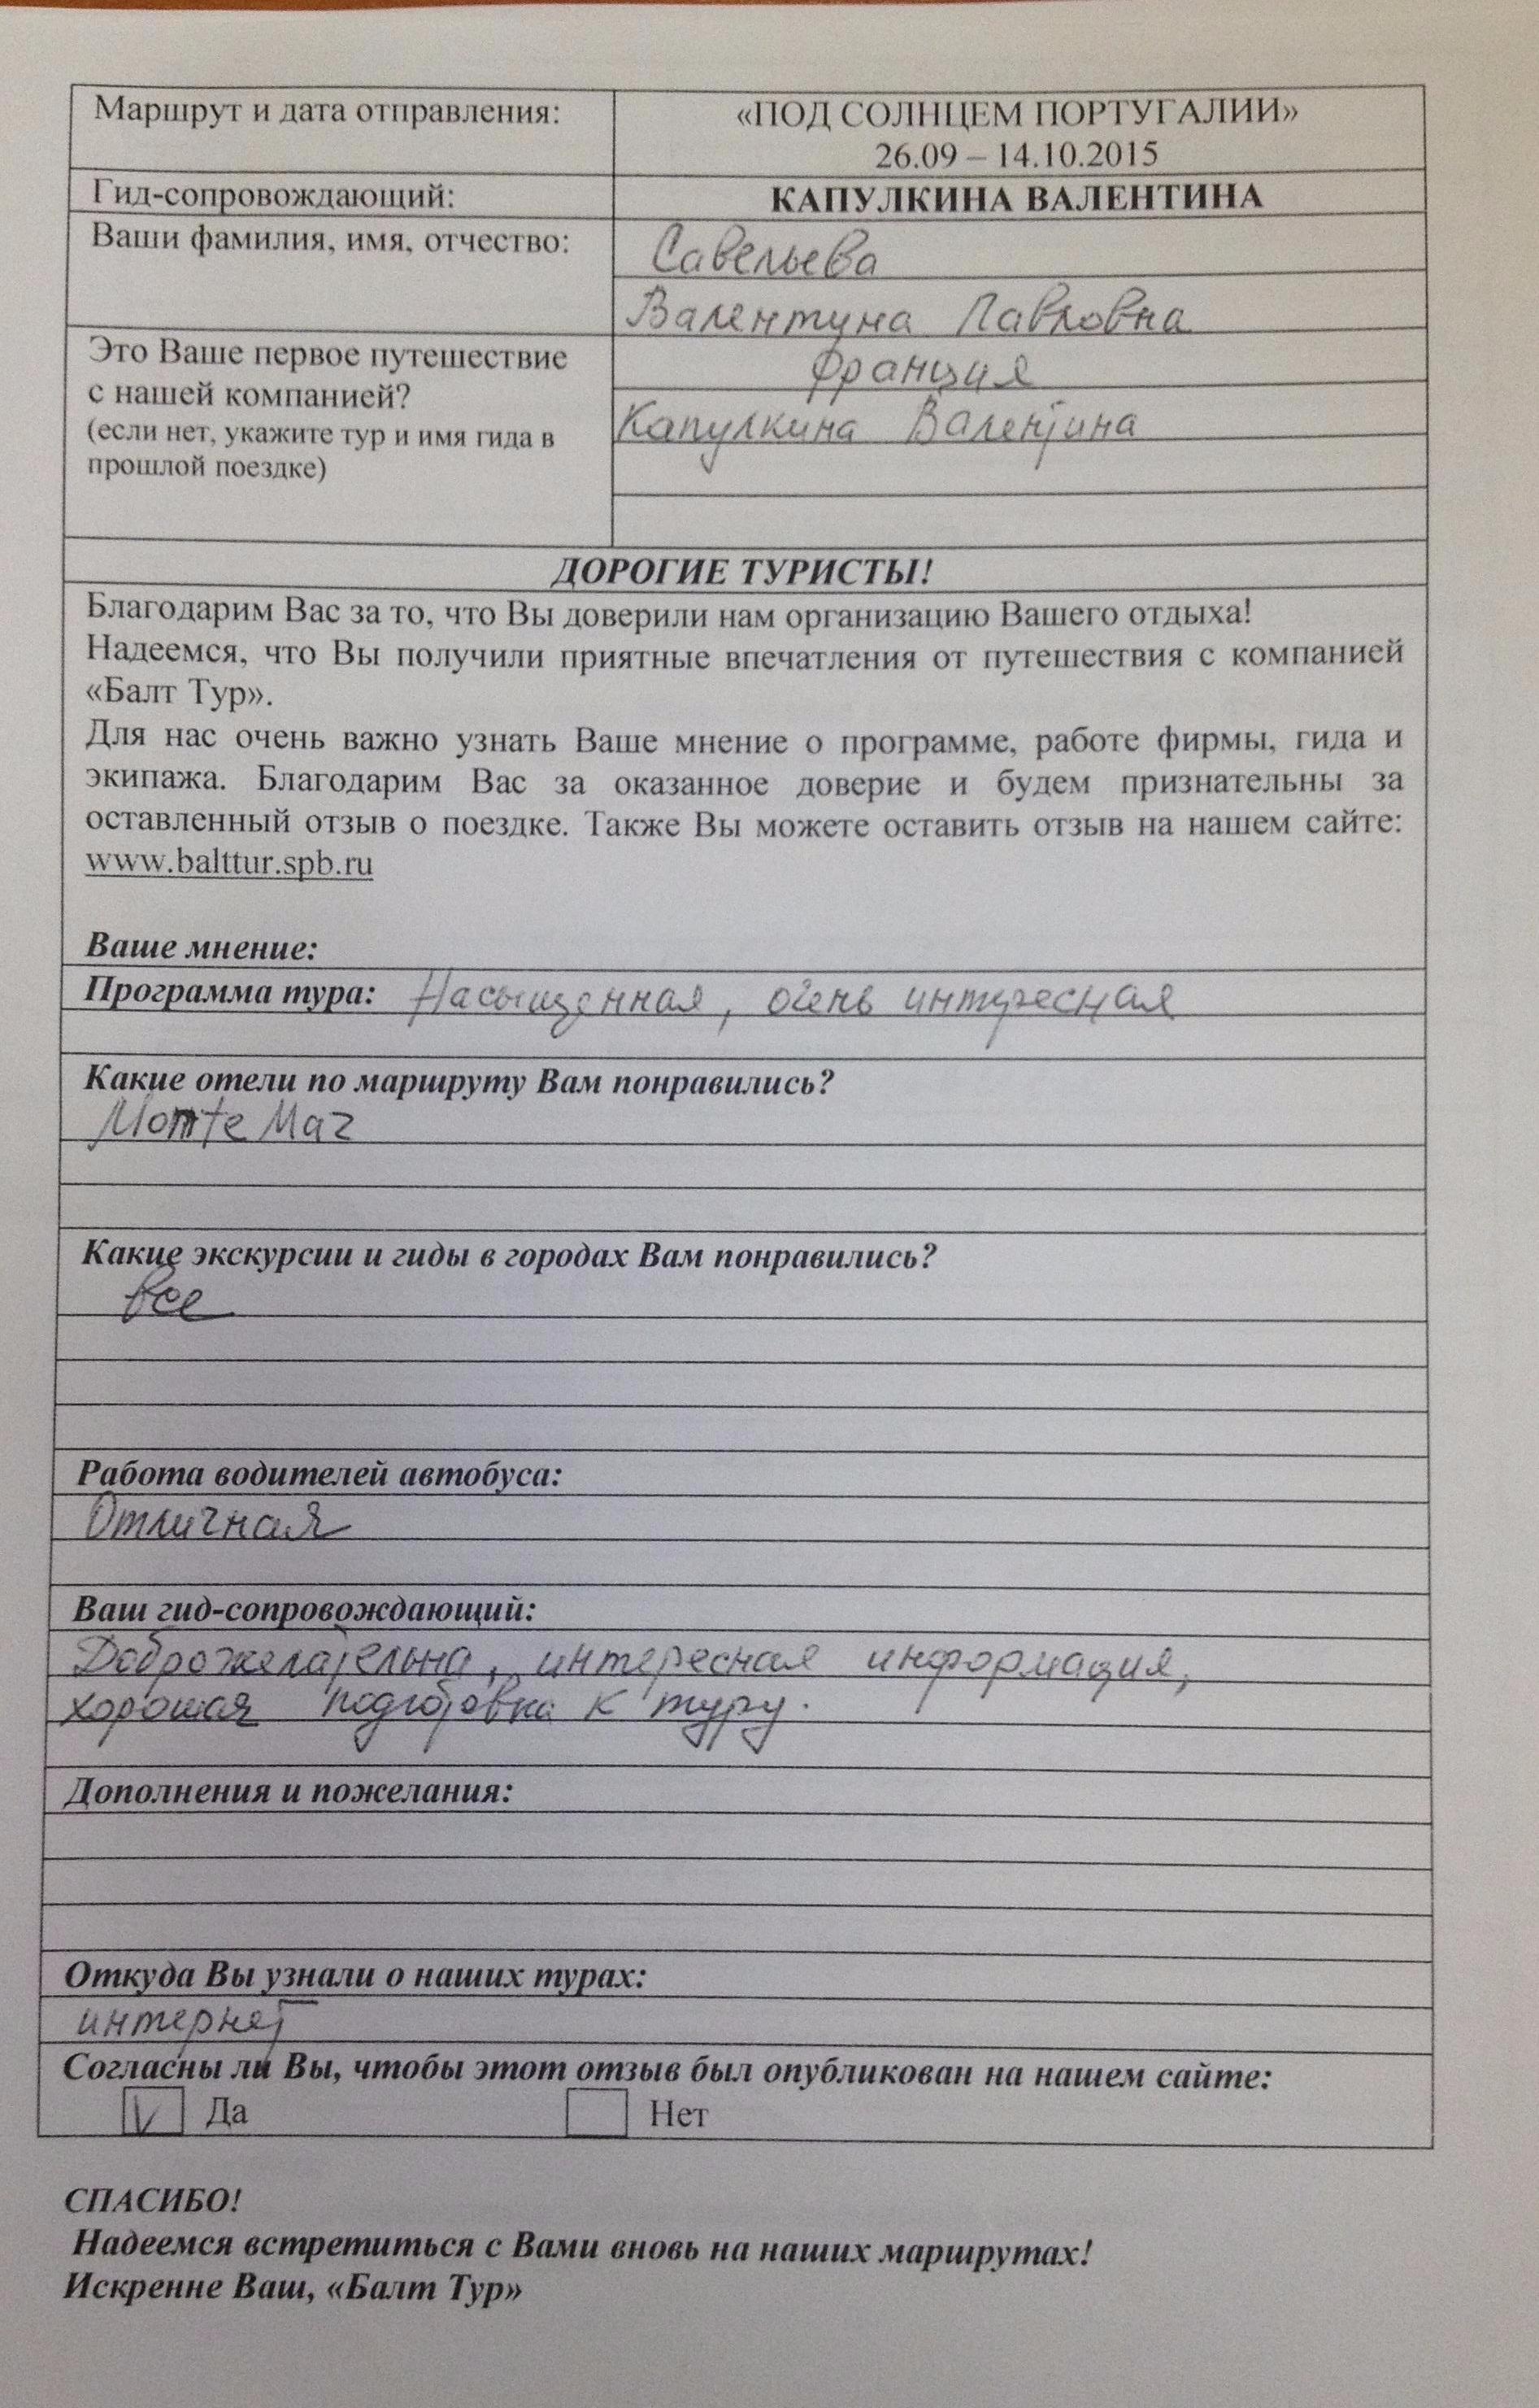 Маршрут и дата отправления:
«ПОД СОЛНЦЕМ ПОРТУГАЛИИ»
26.09 – 14.10.2015
Гид-сопровождающий:
КАПУЛКИНА ВАЛЕНТИНА
Ваши фамилия, имя, отчество:
Савельева
Валентина Павловна
Это Ваше первое путешествие
с нашей компанией?
(если нет, укажите тур и имя гида в
прошлой поездке)
Франция
Капулкина Валентина
ДОРОГИЕ ТУРИСТЫ!
Благодарим Вас за то, что Вы доверили нам организацию Вашего отдыха!
Надеемся, что Вы получили приятные впечатления от путешествия с компанией
«Балт Тур».
Для нас очень важно узнать Ваше мнение о программе, работе фирмы, гида и
экипажа. Благодарим Вас за оказанное доверие и будем признательны за
оставленный отзыв о поездке. Также Вы можете оставить отзыв на нашем сайте:
www.balttur.spb.ru
Ваше мнение:
Программа тура: Насыщенная, очень интересная
Какие отели по маршруту Вам понравились?
Monte Mar
Какие экскурсии и гиды в городах Вам понравились?
Все
Работа водителей автобуса:
Отличная
Ваш гид-сопровождающий:
Доброжелательна, интересная информация,
хорошая подготовка к туру.
Дополнения и пожелания:
Откуда Вы узнали о наших турах:
интернет
Согласны ли Вы, чтобы этот отзыв был опубликован на нашем сайте:
V Да Нет
СПАСИБО!
Надеемся встретиться с Вами вновь на наших маршрутах!
Искренне Ваш, «Балт Тур»